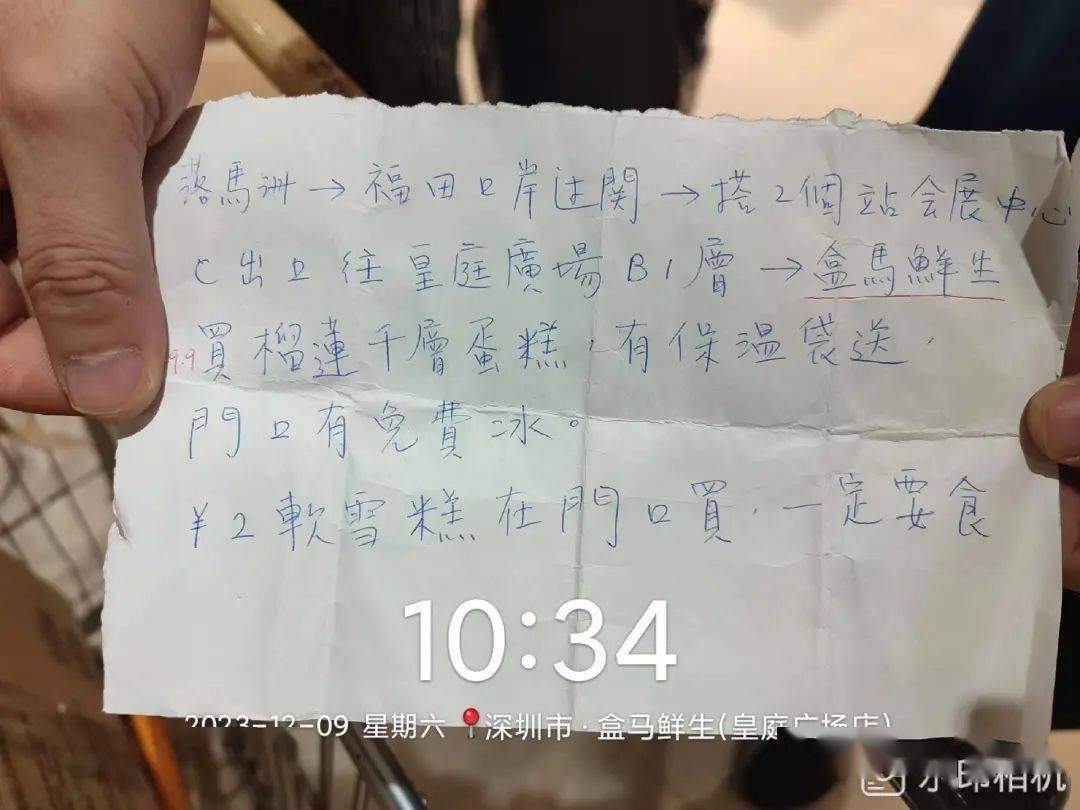 落馬洲→福田口岸过関→搭2個站会展中心
C出口往皇庭廣場B1層→盒馬鮮生
9.9買榴蓮千層蛋糕，有保温袋送，
門口有免費冰。
¥2軟雪糕在門口買，一定要食
10:34
2023-12-09 星期六 深圳市·盒马鲜生(皇庭广场店)
水印相机